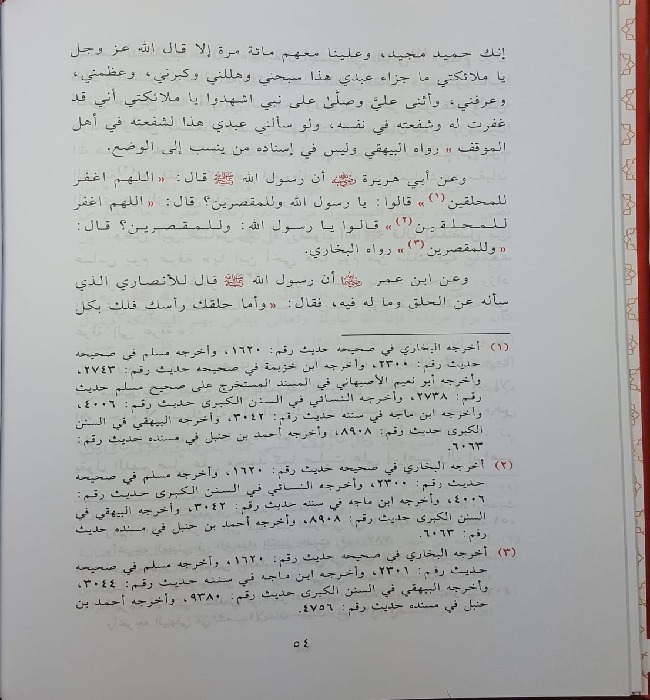 إنك حميد مجيد، وعلينا معهم مائة مرة إلا قال الله عز وجل
يا ملائكتي ما جزاء عبدي هذا سبحني وهللني وكبرني، وعظمني،
وعرفني، وأثنى عليَّ وصلَّىٰ على نبي اشهدوا يا ملائكتي أني قد
غفرت له وشفعته في نفسه، ولو سألني عبدي هذا لشفعته في أهل
الموقف» رواه البيهقي وليس في إسناده من ينسب إلى الوضع.
وعن أبي هريرة رضي الله عنه أن رسول الله ﷺ قال: «اللهم اغفر
للمحلقين(١)» قالوا: يا رسول الله وللمقصرين؟ قال: «اللهم اغفر
للمحلقين(٢)» قالوا يا رسول الله: وللمقصرين؟ قال:
«وللمقصرين(٣)» رواه البخاري.
وعن ابن عمر رضي الله عنهما أن رسول الله ﷺ قال للأنصاري الذي
سأله عن الحلق وما له فيه، فقال: «وأما حلقك رأسك فلك بكل
(١) أخرجه البخاري في صحيحه حديث رقم: ١٦٢٠، وأخرجه مسلم في صحيحه
حديث رقم: ٢٣٠٠، وأخرجه ابن خزيمة في صحيحه حديث رقم: ٢٧٤٣،
وأخرجه أبو نعيم الأصبهاني في المسند المستخرج على صحيح مسلم حديث
رقم: ٢٧٣٨، وأخرجه النسائي في السنن الكبرى حديث رقم: ٤٠٠٦،
وأخرجه ابن ماجه في سننه حديث رقم: ٣٠٤٢، وأخرجه البيهقي في السنن
الكبرى حديث رقم: ٨٩٠٨، وأخرجه أحمد بن حنبل في مسنده حديث رقم:
٦٠٦٣.
(٢) أخرجه البخاري في صحيحه حديث رقم: ١٦٢٠، وأخرجه مسلم في صحيحه
حديث رقم: ٢٣٠٠، وأخرجه النسائي في السنن الكبرى حديث رقم:
٤٠٠٦، وأخرجه ابن ماجه في سننه حديث رقم: ٣٠٤٢، وأخرجه البيهقي في
السنن الكبرى حديث رقم: ٨٩٠٨، وأخرجه أحمد بن حنبل في مسنده حديث
رقم: ٦٠٦٣.
(٣) أخرجه البخاري في صحيحه حديث رقم: ١٦٢٠، وأخرجه مسلم في صحيحه
حديث رقم: ٢٣٠١، وأخرجه ابن ماجه في سننه حديث رقم: ٣٠٤٤،
وأخرجه البيهقي في السنن الكبرى حديث رقم: ٩٣٨٠، وأخرجه أحمد بن
حنبل في مسنده حديث رقم: ٤٧٥٦.
٥٤